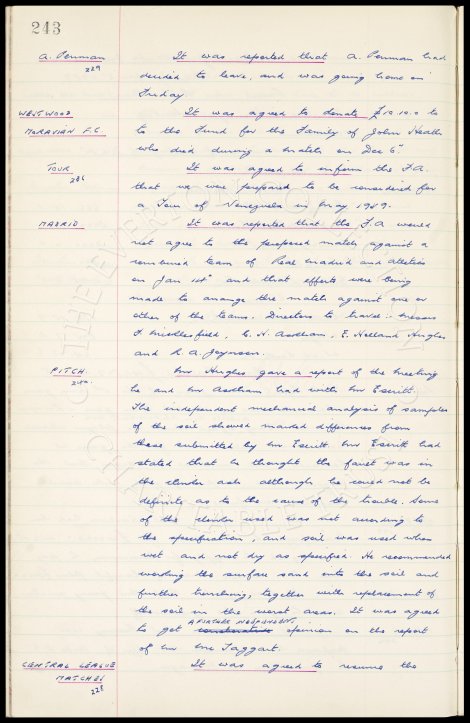 243
A. Penman
229
It was reported that A. Penman had
decided to leave, and was going home on
Friday.
WESTWOOD
MORAVIAN F.C.
It was agreed to donate £10.10.0 to
to the Fund for the Family of John Heath
who died during a match on Dec 6th
TOUR
286
It was agreed to inform the F.A.
that we were prepared to be considered for
a Tour of Venezuela in May 1959.
MADRID
It was reported that the F.A would
not agree to the proposed match against a
combined team of Real Madrid and Atletico
on Jan 1st and that efforts were being
made to arrange the match against one or
other of the teams. Directors to travel - Messrs
F. Micklesfield, C. H. Askham, E. Holland Hughes
and R. A. Joynson.
PITCH.
Mr Hughes gave a report of the meeting
he and Mr Askham had with Mr Escritt.
The independent mechanical analysis of samples
of the soil showed marked differences from
those submitted by Mr Escritt. Mr Escritt had
stated that he thought the fault was in
the clinker ash although he could not be
definite as to the cause of the trouble. Some
of the clinker used was not according to
the specification, and soil was used when
wet and not dry as specified. He recommended
working the surface sand into the soil and
further trenching, together with replacement of
the soil in the worst areas. It was agreed
to get A FURTHER INDEPENDENT opinion on the report
of Mr Mc Taggart.
CENTRAL LEAGUE
MATCHES
228
It was agreed to resume the
THE EVERTON